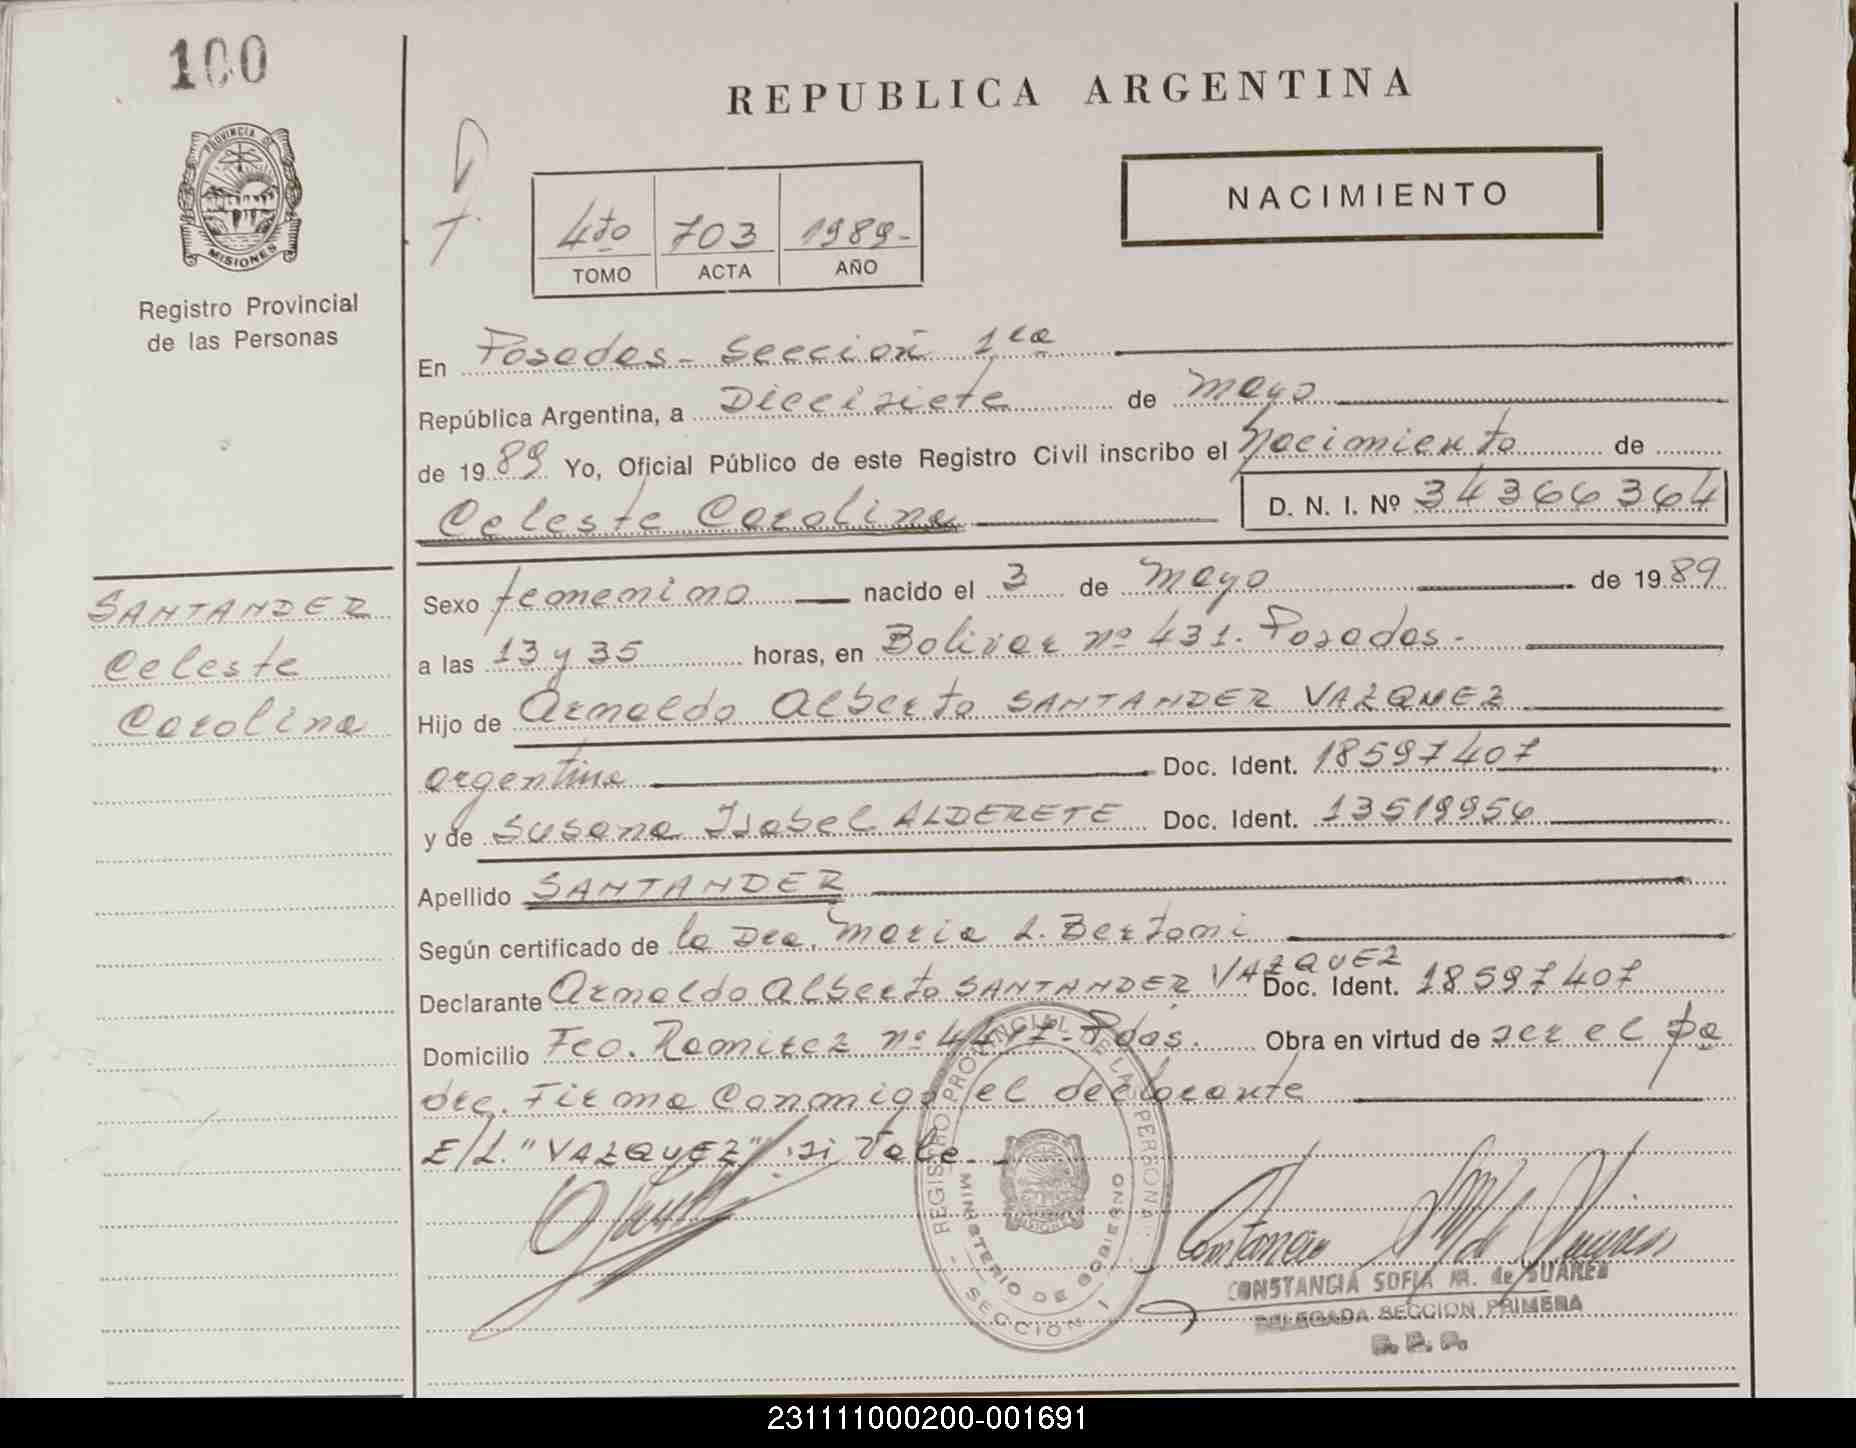 100
PROVINCIA DE
MISIONES
Registro Provincial
de las Personas
REPUBLICA ARGENTINA
NACIMIENTO
4to 703 1989-
TOMO ACTA AÑO
En Posadas - Sección 1ra
República Argentina, a Diecisiete de Mayo
de 1989 Yo, Oficial Público de este Registro Civil inscribo el Nacimiento de
Celeste Carolina D. N. I. Nº 34366364
Sexo femenino nacido el 3 de Mayo de 1989
a las 13 y 35 horas, en Bolivar nº 431. Posadas.-
Hijo de Arnaldo Alberto SANTANDER VAZQUEZ
argentina Doc. Ident. 18597407
y de Susana Isabel ALDERETE Doc. Ident. 13519956
Apellido SANTANDER
Según certificado de la Dra. Maria L. Bertoni
Declarante Arnaldo Alberto SANTANDER VAZQUEZ Doc. Ident. 18597407
Domicilio Fco. Ramirez nº 4417- Pdas. Obra en virtud de ser el pa
dre. Firma Conmigo el declarante
E/L. "VAZQUEZ" .si Vale.-
SANTANDER
Celeste
Carolina
REGISTRO PROVINCIAL DE LAS PERSONAS
MINISTERIO DE GOBIERNO
- SECCION 1 -
CONSTANCIA SOFIA M. de SUAREZ
DELEGADA SECCION PRIMERA
R. P. P.
231111000200-001691